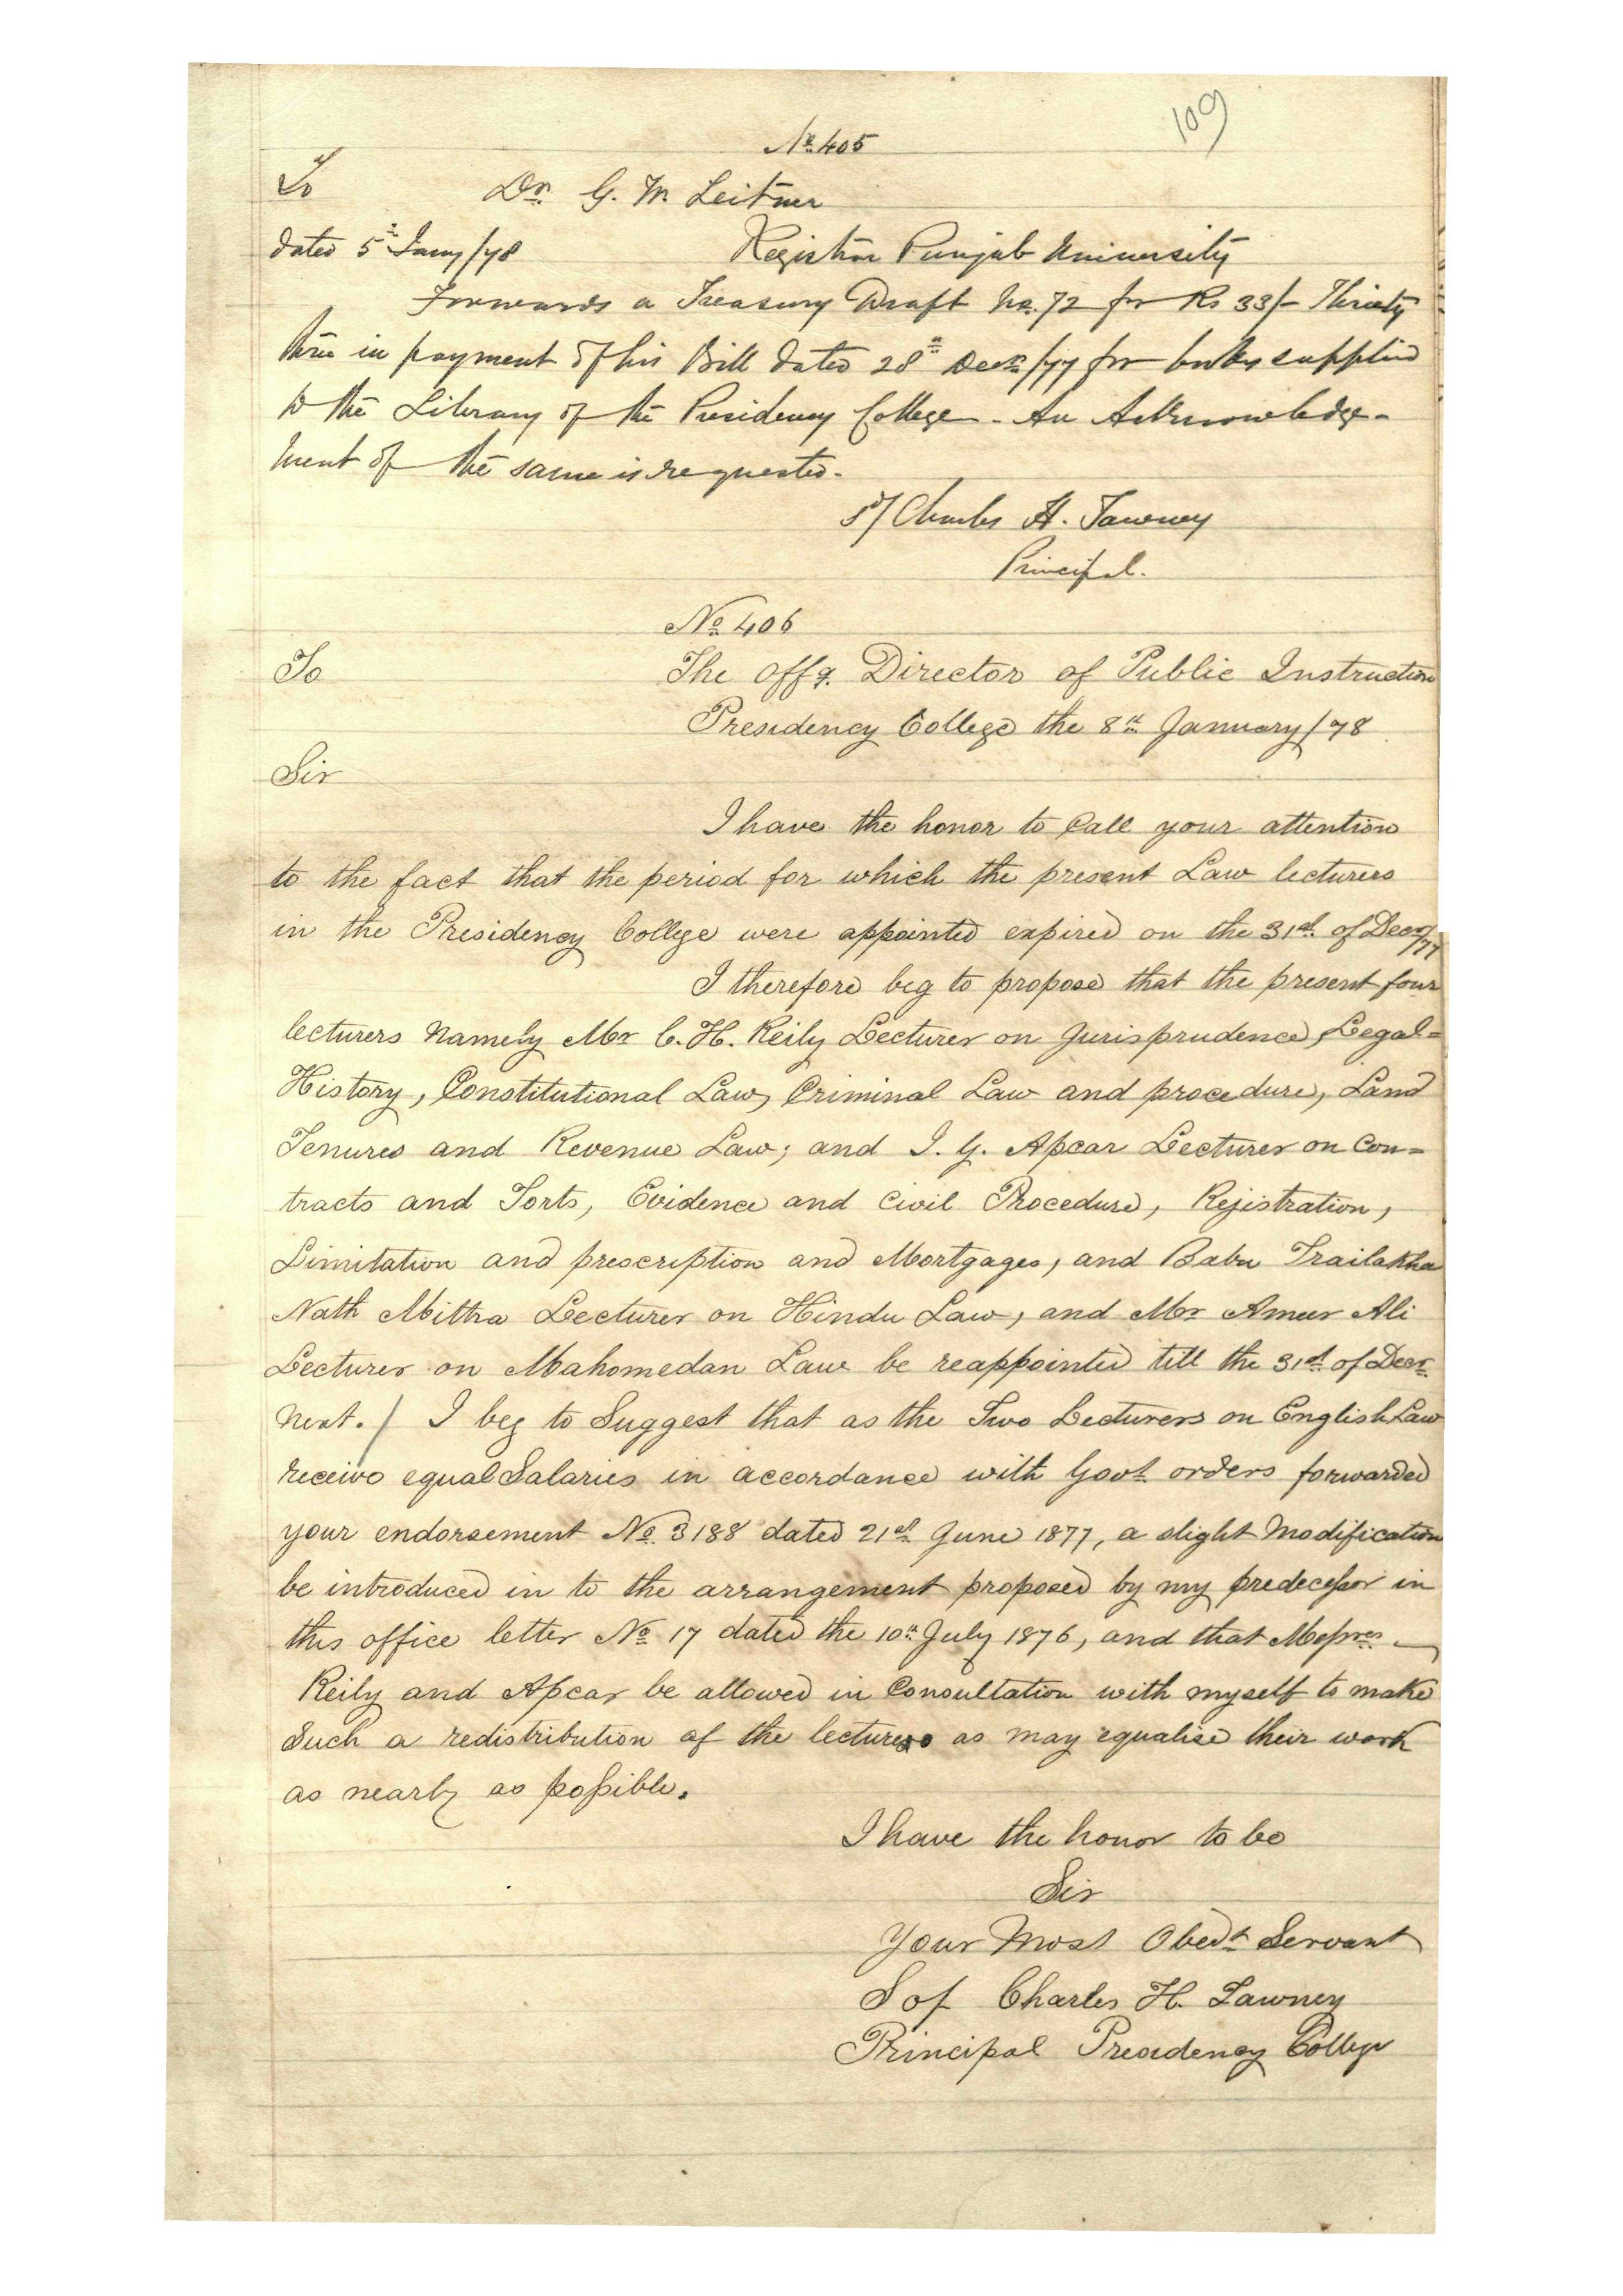 109
No. 405
To Dr. G. W. Leitner
dated 5th Jany/78 Registrar Punjab University
Forwards a Treasury Draft No. 72 for Rs 33/- Thirty
three in payment of his Bill dated 28th Decr/77 for books supplied
to the Library of the Presidency College - An Acknowledge-
ment of the same is requested.
Sd/ Charles H. Tawney
Principal.
No 406
To The Offg. Director of Public Instruction
Presidency College the 8th January/78
Sir
I have the honor to Call your attention
to the fact that the period for which the present Law lecturers
in the Presidency College were appointed expired on the 31st of Decr/77
I therefore beg to propose that the present four
lecturers Namely Mr C. H. Reily Lecturer on Jurisprudence, Legal=
History, Constitutional Law, Criminal Law and procedure, Land
Tenures and Revenue Law; and I. G. Apcar Lecturer on Con=
tracts and Torts, Evidence and Civil Procedure, Rejistration,
Limitation and prescription and Mortgages, and Babu Trailakha
Nath Mittra Lecturer on Hindu Law, and Mr Ameer Ali
Lecturer on Mahomedan Law be reappointed till the 31st of Decr
Next. / I beg to Suggest that as the Two Lecturers on English Law
receive equal Salaries in accordance with Govt orders forwarded
your endorsement No. 3188 dated 21st June 1877, a slight Modification
be introduced in to the arrangement proposed by my predecessor in
this office letter No 17 dated the 10th July 1876, and that Messrs
Reily and Apcar be allowed in Consultation with myself to make
Such a redistribution of the lectures as may equalise their work
as nearly as possible.
I have the honor to be
Sir
Your Most Obedt Servant
Sd/ Charles H. Tawney
Principal Presidency College